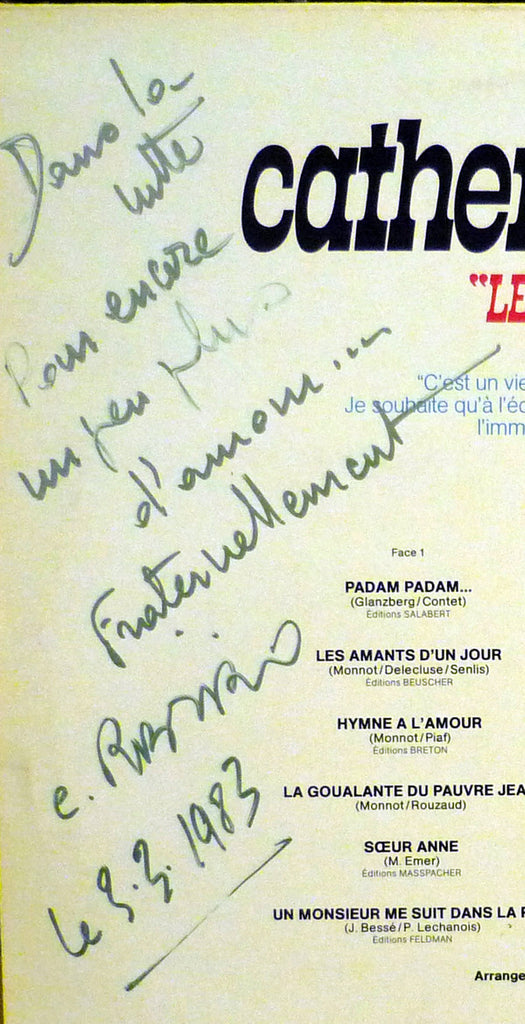 Dans la
lutte
Pour encore
un peu plus
d'amour...
Fraternellement
C. RIBEIRO
le 3.3.1983
cather
"LE
"C'est un vie
Je souhaite qu'à l'éc
l'imm
Face 1
PADAM PADAM...
(Glanzberg/Contet)
Éditions SALABERT
LES AMANTS D'UN JOUR
(Monnot/Delecluse/Senlis)
Éditions BEUSCHER
HYMNE A L'AMOUR
(Monnot/Piaf)
Éditions BRETON
LA GOUALANTE DU PAUVRE JEA
(Monnot/Rouzaud)
SŒUR ANNE
(M. Emer)
Éditions MASSPACHER
UN MONSIEUR ME SUIT DANS LA R
(J. Bessé/P. Lechanois)
Éditions FELDMAN
Arrange